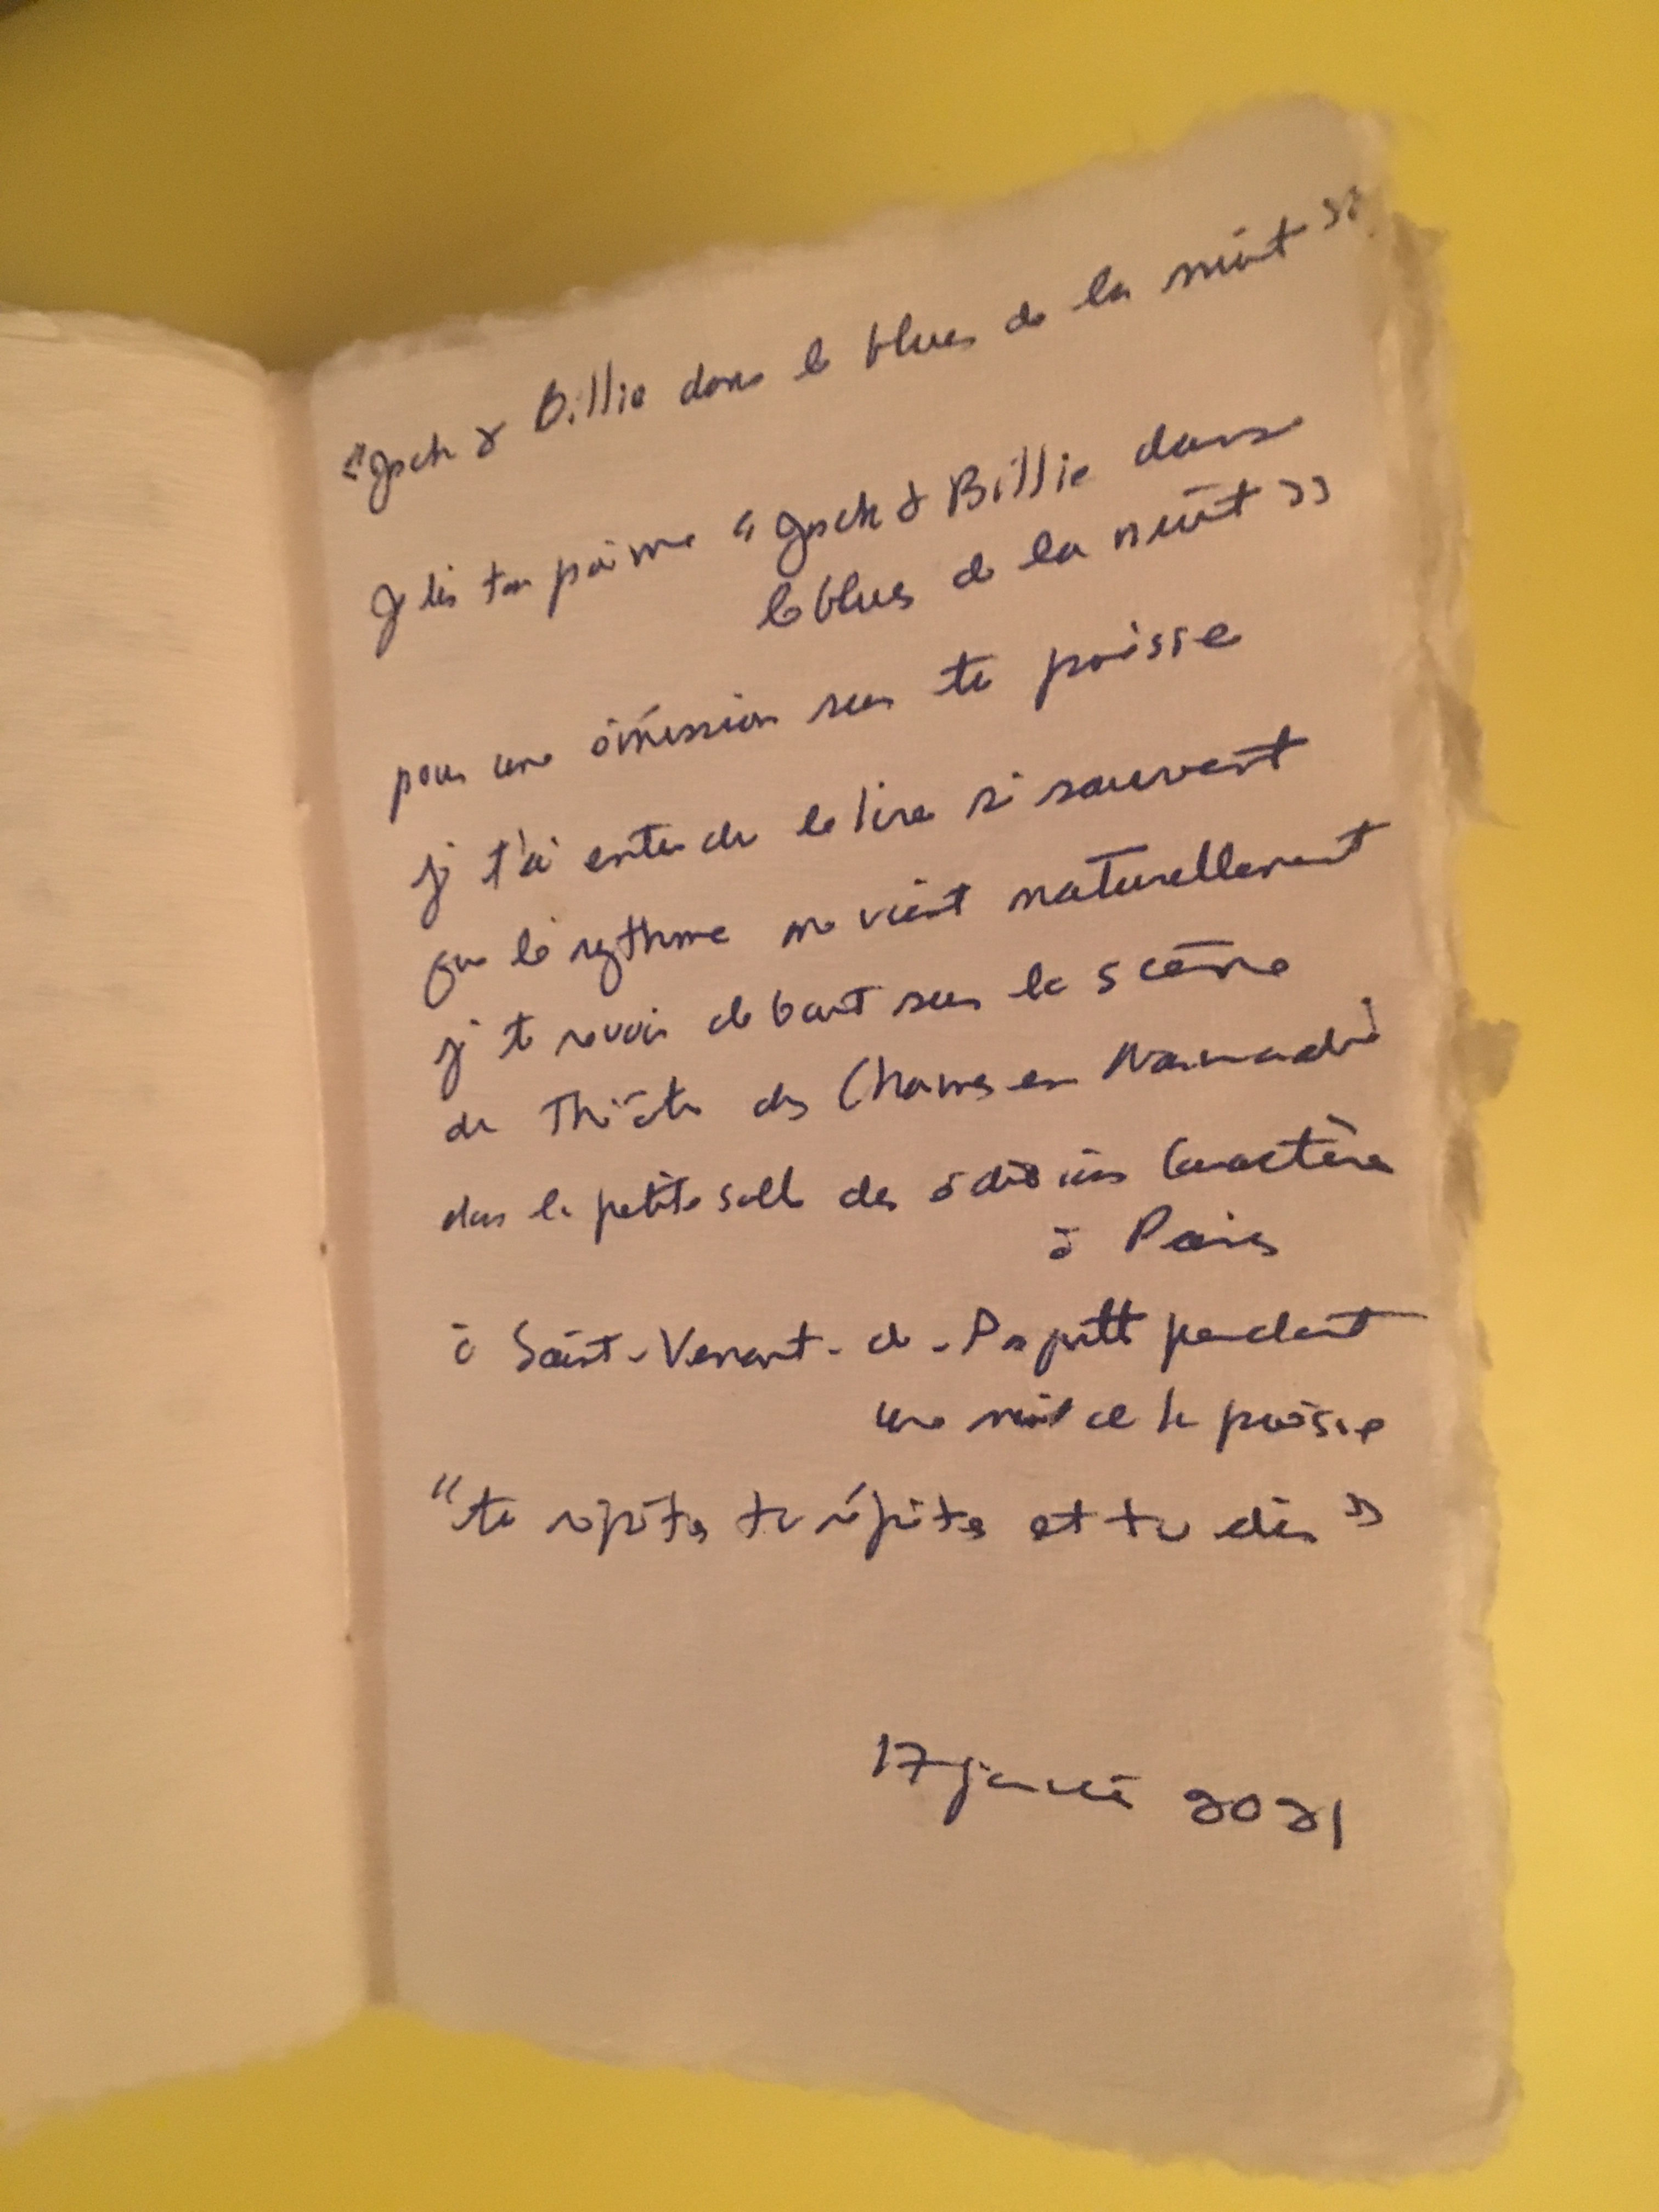 “Jack & Billie dans le blues de la nuit”
Je lis ton poème “Jack & Billie dans
le blues de la nuit”
pour une émission sur ta poésie
je t'ai entendu le lire si souvent
que le rythme me vient naturellement
je te revois debout sur la scène
du Théâtre des Charmes en Normandie
dans la petite salle des éditions Caractères
à Paris
à Saint-Venant-de- pendant
une nuit de la poésie
“tu répètes tu répètes et tu dis”
17 janvier 2021